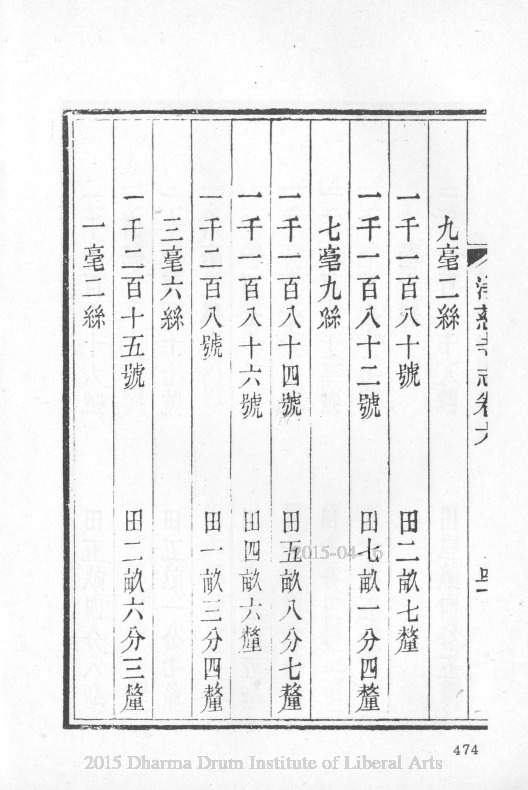 淨慈寺志卷六
九毫二絲
一千一百八十號 田二畝七釐
一千一百八十二號 田七畝一分四釐
七毫九絲
一千一百八十四號 田五畝八分七釐
一千一百八十六號 田四畝六釐
一千二百八號 田一畝三分四釐
三毫六絲
一千二百十五號 田二畝六分三釐
一毫二絲
2015-04-16
474
2015 Dharma Drum Institute of Liberal Arts